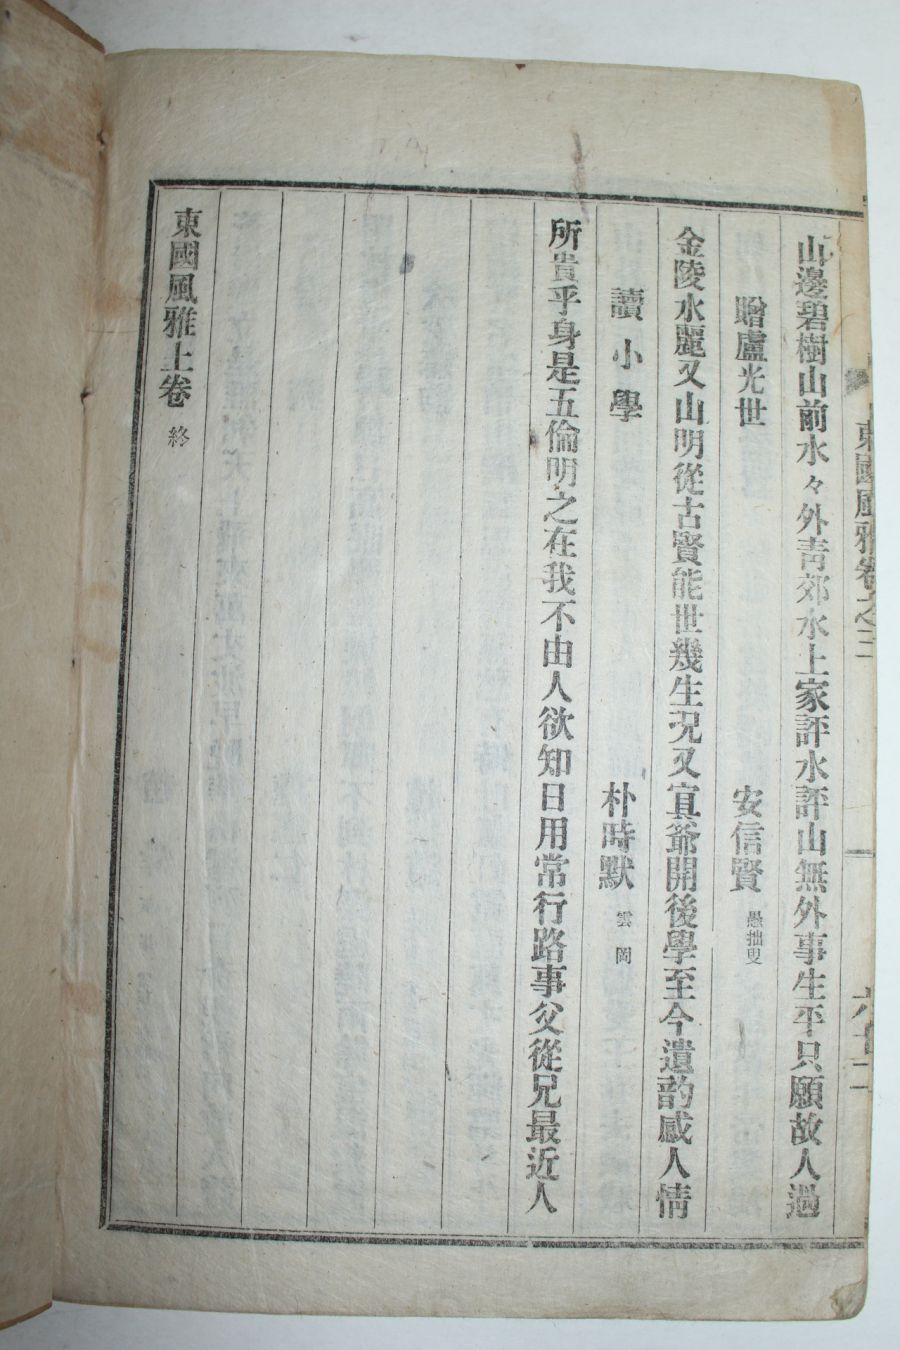 東國風雅卷之三
山邊碧樹山前水々外靑郊水上家評水評山無外事生平只願故人過
贈盧光世 安信賢 愚拙叟
金陵水麗又山明從古賢能世幾生況又寘爺開後學至今遺韵感人情
讀小學 朴時默 雲岡
所貴乎身是五倫明之在我不由人欲知日用常行路事父從兄最近人
東國風雅上卷 終